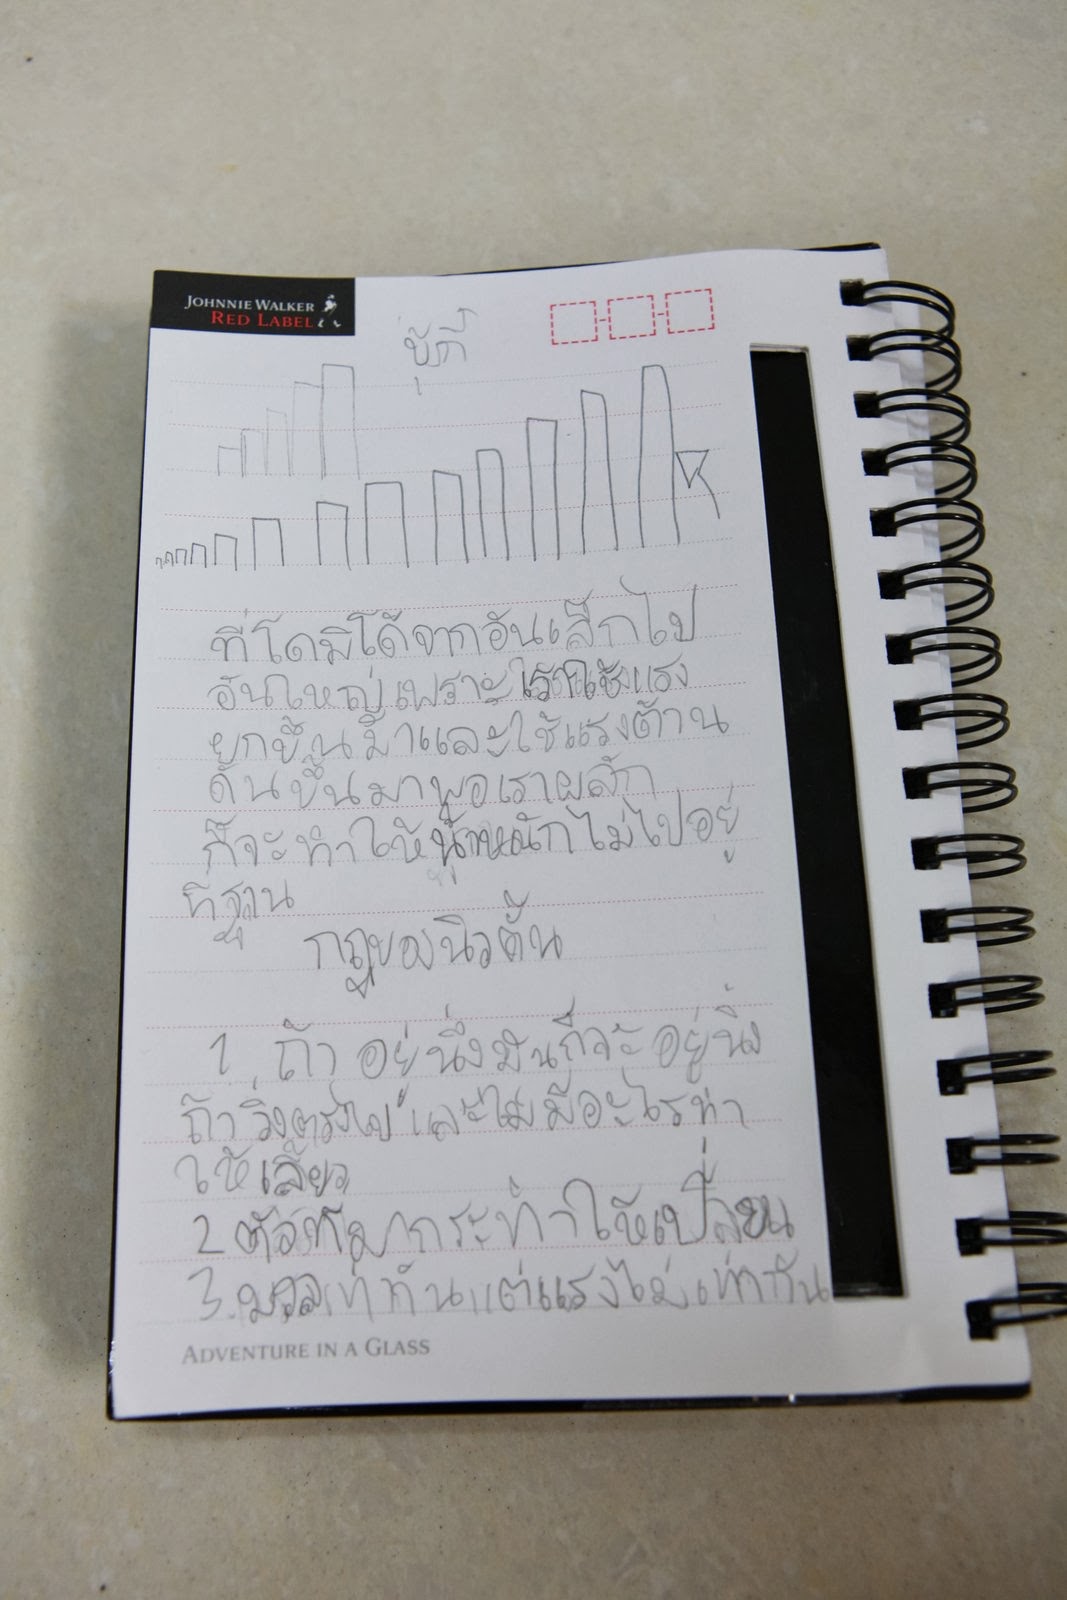 JOHNNIE WALKER
RED LABEL
ที่โดมิโด้จากอันเล็กไป
อันใหญ่เพราะเราใช้แรง
ยกขึ้นมาและใช้แรงต้าน
ดันขึ้นมาพอเราผลัก
ก็จะทำให้น้ำหนักไม่ไปอยู่
ที่ฐาน
กฎของนิวตั้น
1 ถ้า อยู่นิ่งมันก็จะอยู่นิ่ง
ถ้าวิ่งตรงไป และไม่มีอะไรทำ
ให้เลี้ยว
2 กระทำให้เปลี่ยน
3. มวลเท่ากันแต่แรงไม่เท่ากัน
ADVENTURE IN A GLASS